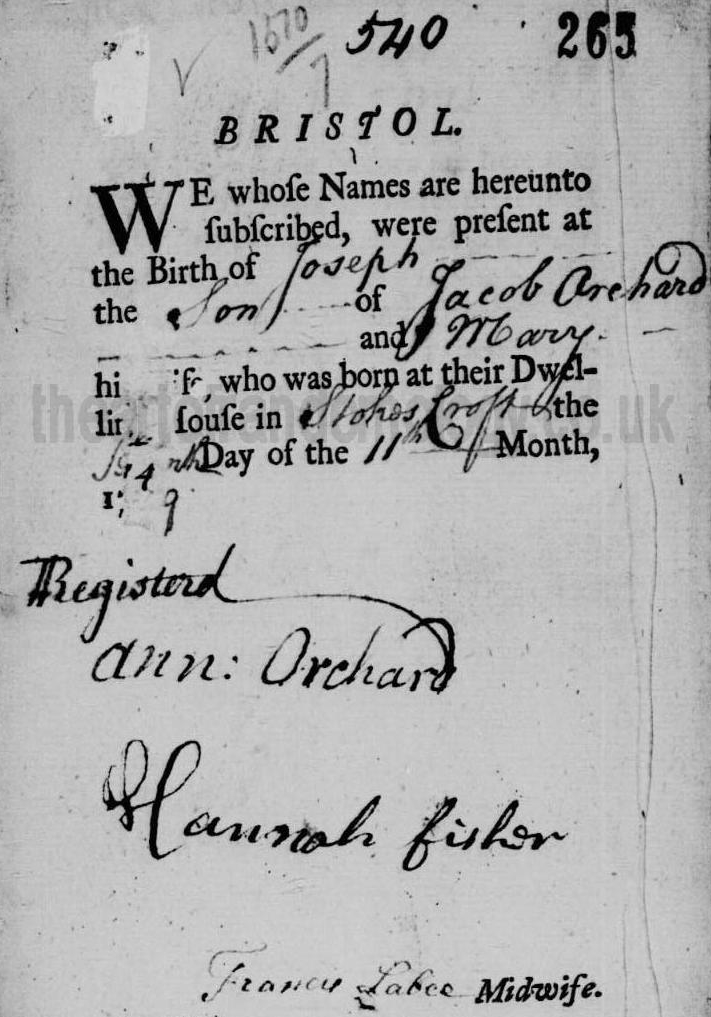 1670/7 540 265
BRISTOL.
WE whoſe Names are hereunto
ſubſcribed, were preſent at
the Birth of Joseph
the Son of Jacob Orchard
and Mary
hi ife, who was born at their Dwel-
lin Houſe in Stokes Croft the
Day of the 11th Month,
Registerd
Ann: Orchard
Hannah Fisher
Francis Labee Midwife.